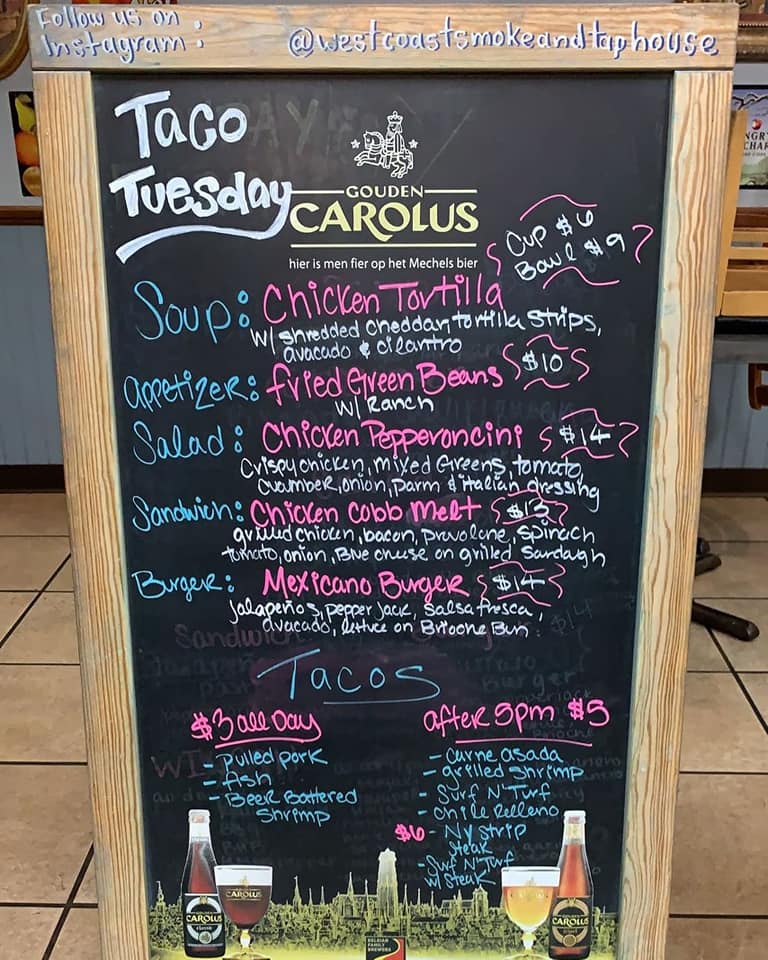 Follow us on
Instagram: @westcoastsmokeandtaphouse
Taco
Tuesday
GOUDEN
CAROLUS
hier is men fier op het Mechels bier
Cup $6
Bowl $9
Soup: Chicken Tortilla
w/ shredded cheddar, tortilla strips,
avocado & cilantro
Appetizer: Fried Green Beans $10
w/ Ranch
Salad: Chicken Pepperoncini $14
Crispy chicken, mixed Greens, tomato,
cucumber, onion, parm & italian dressing
Sandwich: Chicken Cobb Melt
grilled chicken, bacon, provolone, spinach
tomato, onion, Blue cheese on grilled
Burger: Mexicano Burger $14
jalapeños, pepper jack, salsa fresca,
avocado, lettuce on Brioche Bun
Tacos
$3 all Day
- Pulled pork
- Fish
- Beer Battered
Shrimp
after 5pm $5
- Carne asada
- grilled shrimp
- Surf N' Turf
- chile Relleno
$6 - NY strip
steak
- Surf N' Turf
w/ steak
CAROLUS
CAROLUS
CAROLUS
CAROLUS
BELGIAN
FAMILY
BREWERS